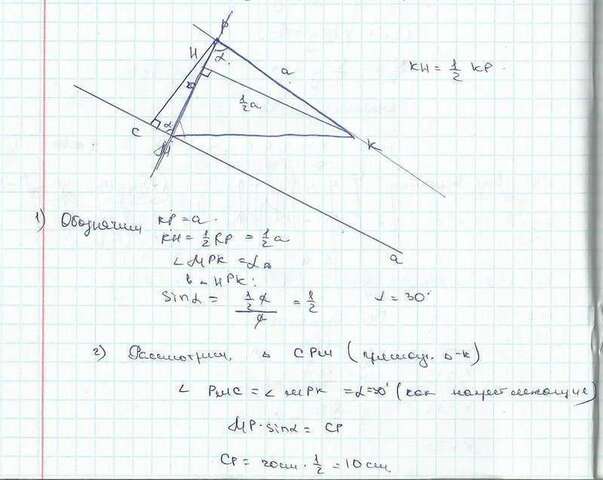 P
H
α
a
KH = 1/2 KP.
1/2 a
C
α
M
K
a
1) Обозначим KP = a.
KH = 1/2 KP = 1/2 a
∠ MPK = α
в △ HPK:
sin α = (1/2 a) / a = 1/2   α = 30°
2) Рассмотрим △ CPM (прямоуг. △-к)
∠ PMC = ∠ MPK = α = 30° (как накрест лежащие)
MP · sin α = CP
CP = 20cm · 1/2 = 10cm.